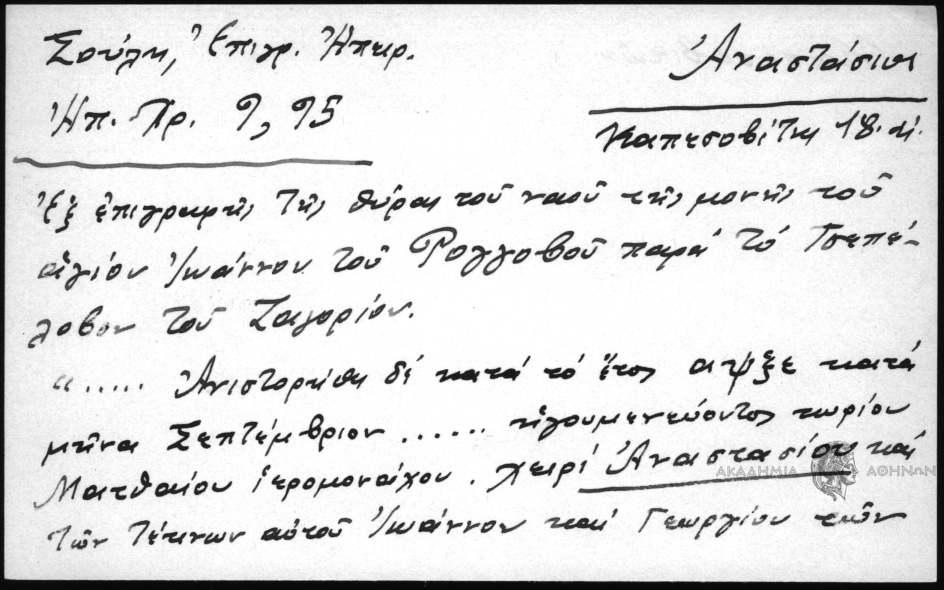 Σούλη, Ἐπιγρ. Ἠπειρ.
Ἠπ. Χρ. 9, 95
Ἀναστάσιος
Καπεσοβίτης 18. αἰ.
Ἐξ ἐπιγραφῆς τῆς θύρας τοῦ ναοῦ τῆς μονῆς τοῦ
ἁγίου Ἰωάννου τοῦ Ρογγοβοῦ παρά τό Τσεπέ-
λοβον τοῦ Ζαγορίου.
"..... Ἀνιστορήθη δέ κατά τό ἔτος αψξε κατά
μῆνα Σεπτέμβριον ...... ἡγουμενεύοντος κυρίου
Ματθαίου ἱερομονάχου. χειρί Ἀναστασίου καί
τῶν τέκνων αὐτοῦ Ἰωάννου καί Γεωργίου τῶν
ΑΚΑΔΗΜΙΑ ΑΘΗΝΩΝ